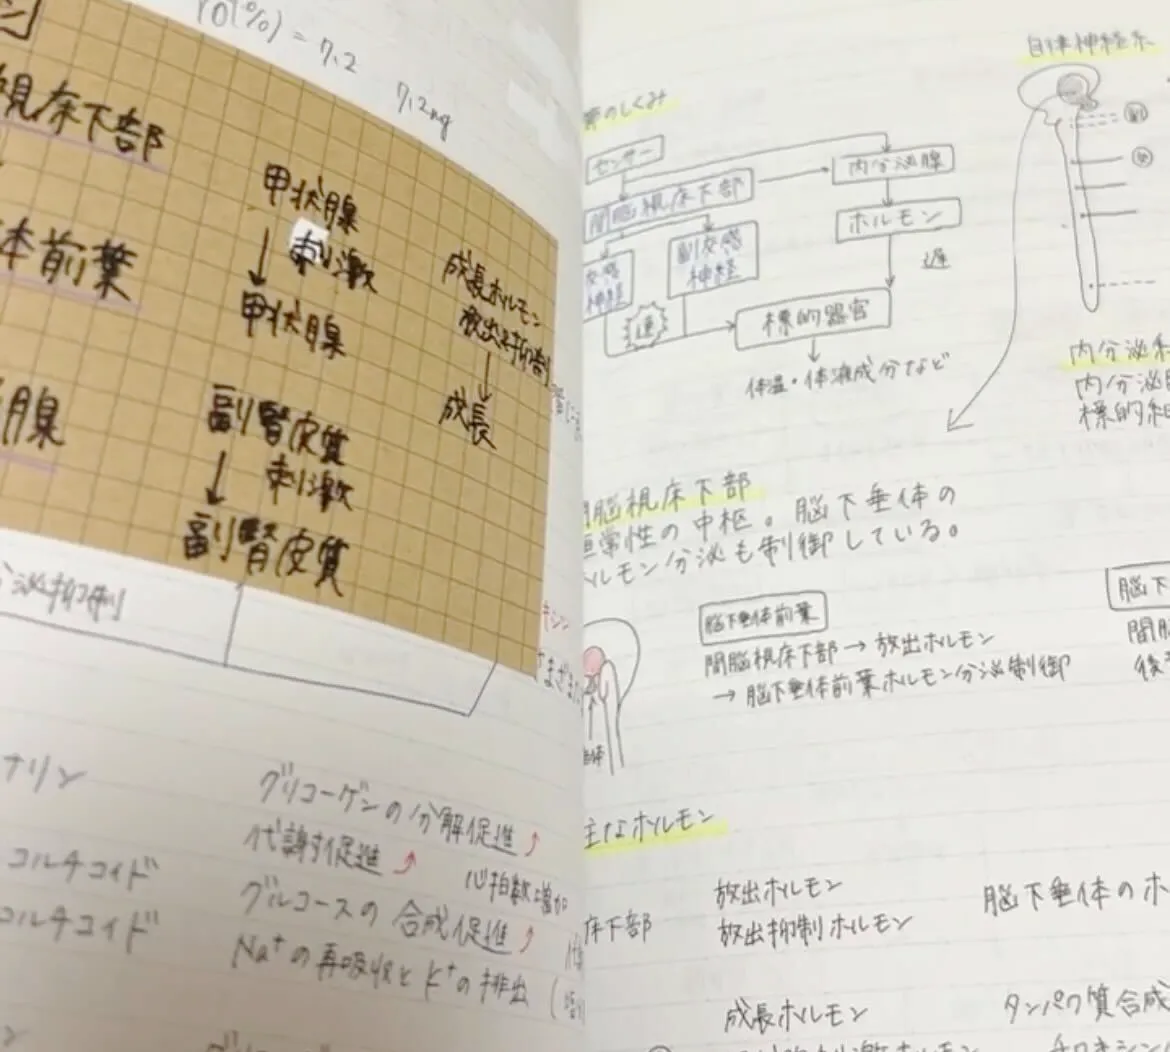 (%) = 7.2
7.2mg
視床下部
体前葉
腺
甲状腺
刺激
甲状腺
副腎皮質
刺激
副腎皮質
成長ホルモン
放出抑制
成長
泌抑制
ナリン
グリコーゲンの分解促進
代謝促進
心拍数増加
コルチコイド
グルコースの合成促進
コルチコイド
Na⁺の再吸収とK⁺の排出
のしくみ
センサー
間脳視床下部
交感
神経
副交感
神経
速
内分泌腺
ホルモン
遅
標的器官
体温・体液成分など
自律神経系
内分泌
内分泌
標的
脳視床下部
常性の中枢。脳下垂体の
ルモン分泌も制御している。
脳下垂体前葉
間脳視床下部→放出ホルモン
→脳下垂体前葉ホルモン分泌制御
脳下
間
後
主なホルモン
床下部
放出ホルモン
放出抑制ホルモン
脳下垂体のホ
成長ホルモン
タンパク質合成